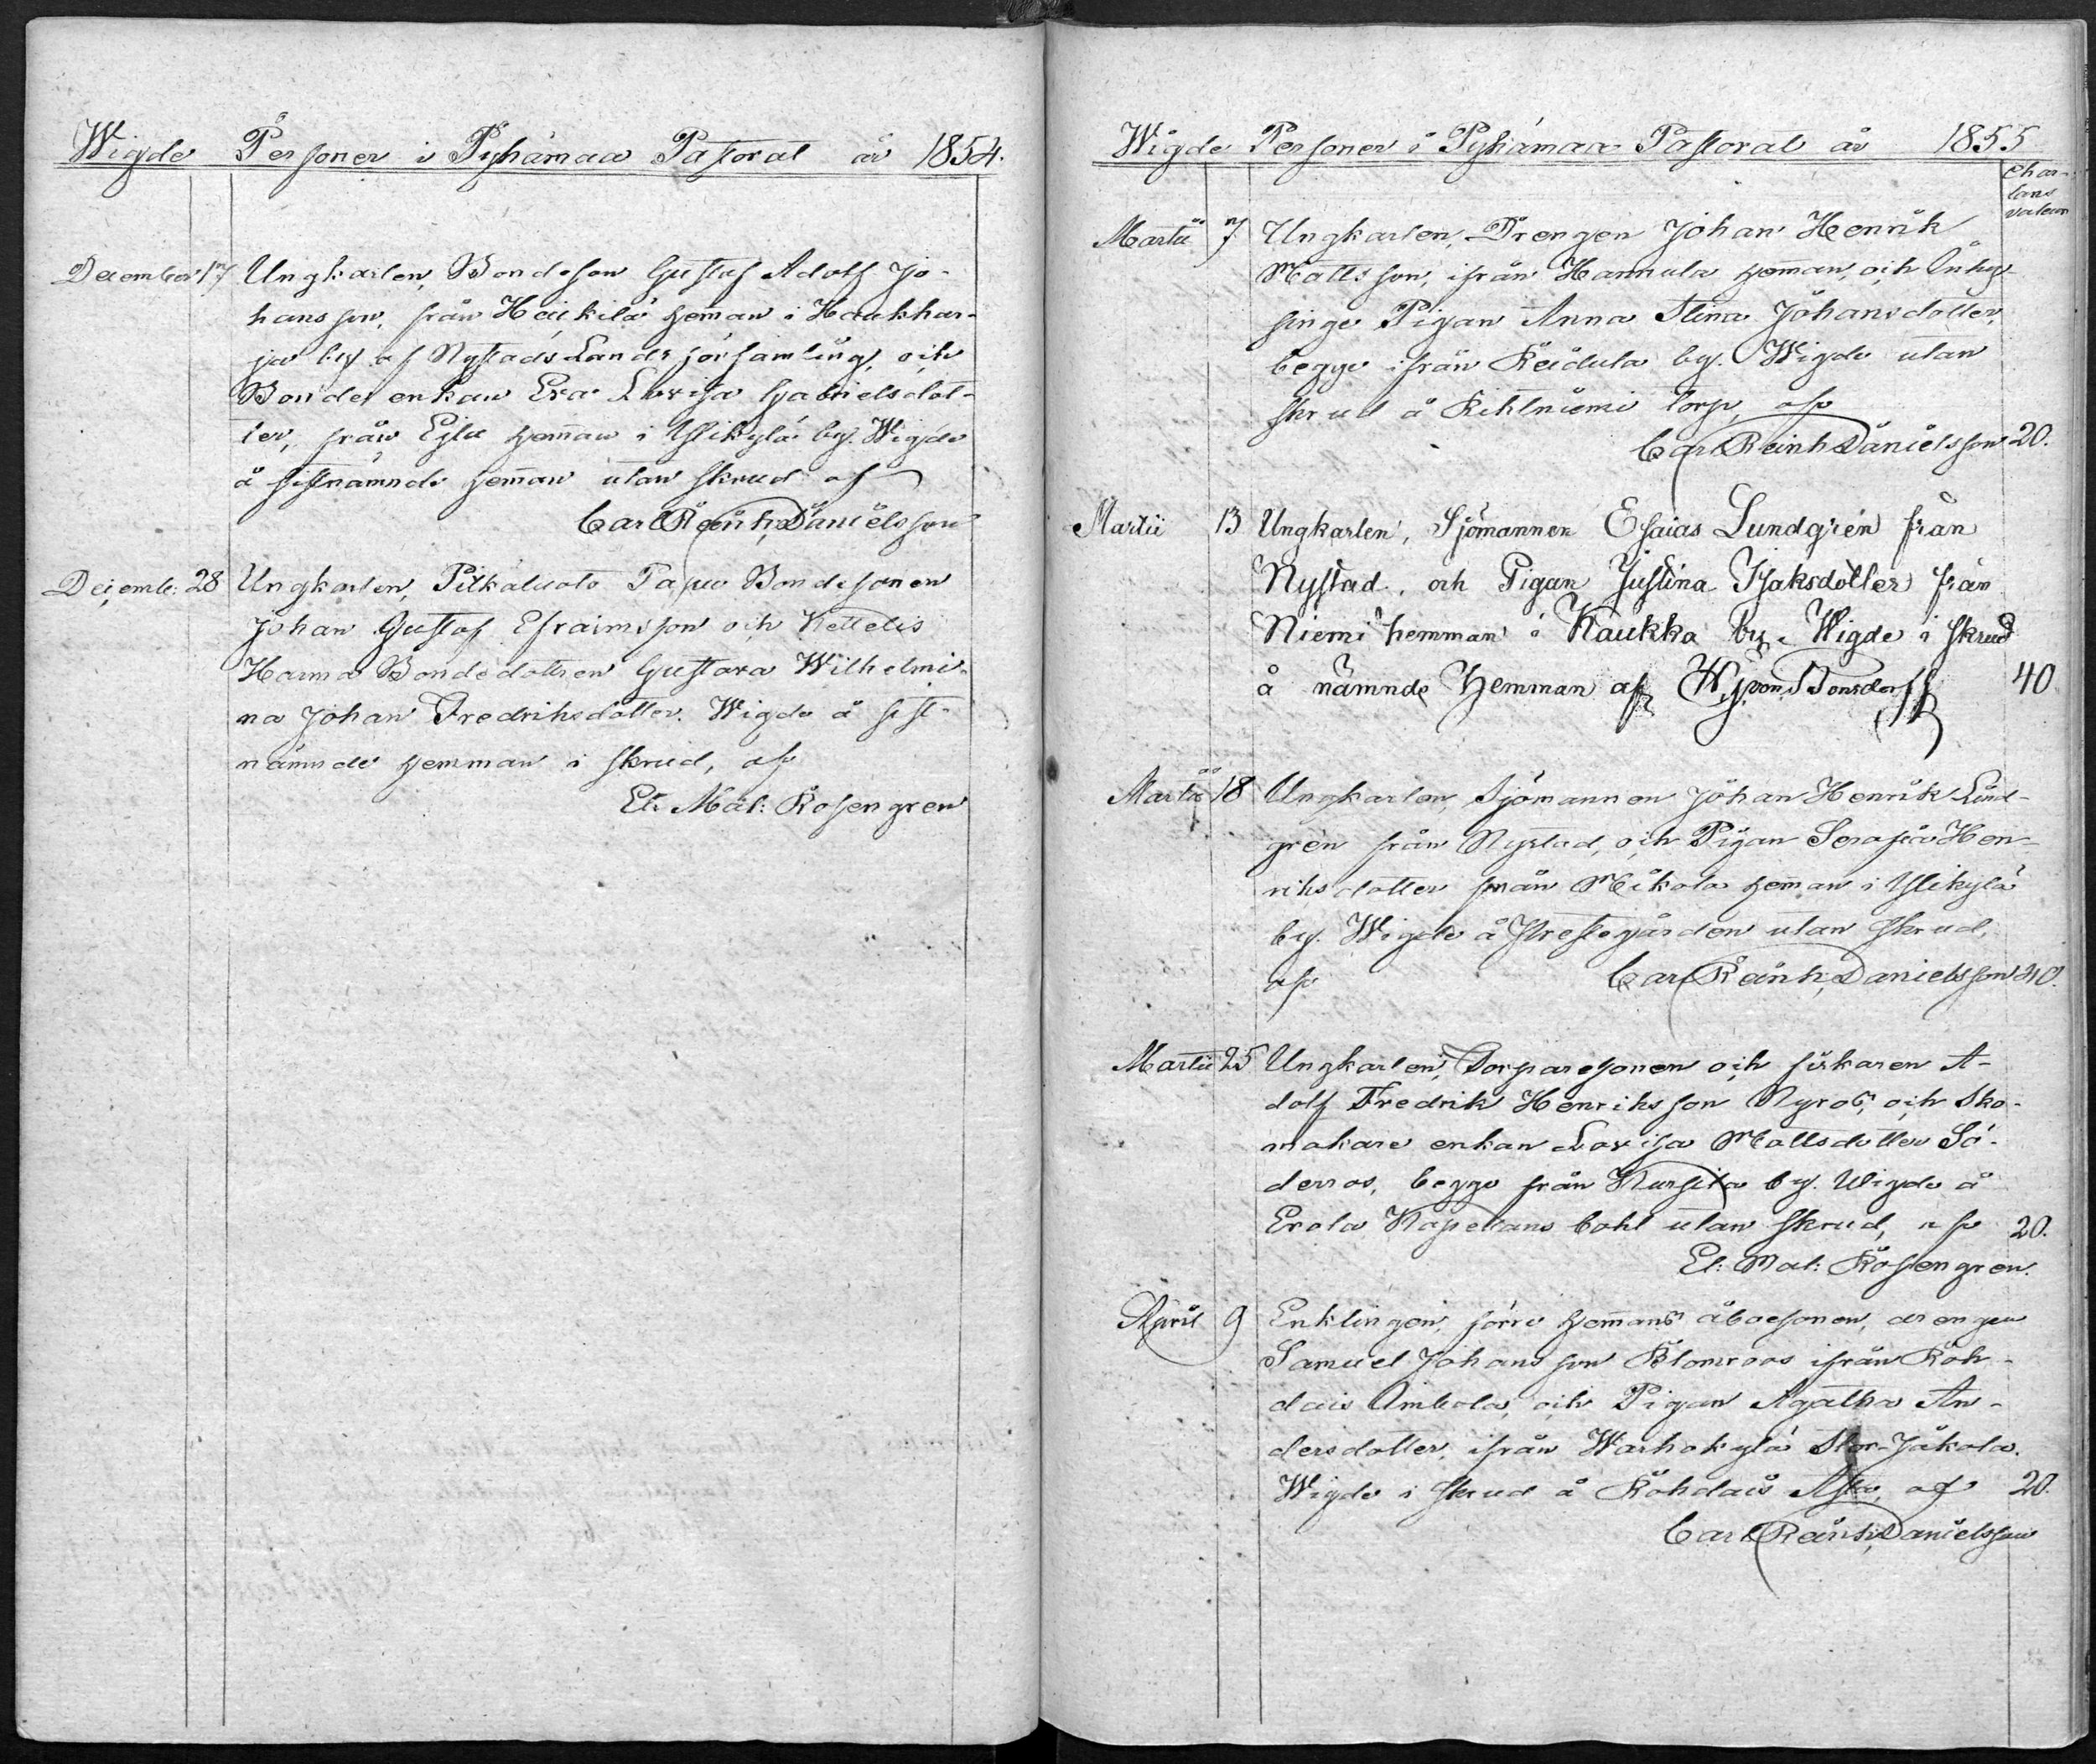 Wigde Personer i Pyhämaa Pastorat år 1854.
December 17 Ungkarlen, Bondeson Gustaf Adolf Jo-
hansson, från Heickilä hem̄an i Haukhar-
ja by af Nystads Lands församling, och
Bonde enkan Eva Lovisa Gabrielsdot-
ter, från Ejlu hem̄an i Ylikylä by. Wigde
å sistnämnde hem̄an utan skrud af
Carl Reinh. Danielsson
Decemb: 28 Ungkarlen, Pitkäluoto Papu Bondesonen
Johan Gustaf Efraimsson och Kettelis
Hanna Bondedottren Gustava Wilhelmi-
na Johan Fredriksdotter. Wigde å sist-
nämnde hemman i skrud, af
El: Mat: Rosengren
Wigde Personer i Pyhämaa Pastorat år 1855
Char-
tans
valeur
Martii 7 Ungkarlen, Drengen Johan Henrik
Mattsson, ifrån Hannula hem̄an, och Inhy-
singe Pigan Anna Stina Johansdotter,
begge ifrån Reidula by. Wigde utan
skrud å Rihtniemi torp, af
Carl Reinh. Danielsson 20.
Martii 13 Ungkarlen, Sjömannen Esaias Lundgrén från
Nystad, och Pigan Justina Isaksdotter från
Niemi hemman i Kaukka by. Wigde i skrud
å nämnde Hemman af W. von Bonsdorff 40
Martii 18 Ungkarlen, Sjömannen Johan Henrik Lind-
grén från Nystad, och Pigan Serafia Hen-
riksdotter från Mikola hem̄an i Ylikylä
by. Wigde å Prestegården utan skrud,
af Carl Reinh. Danielsson 40.
Martii 25 Ungkarlen, Torparesonen och fiskaren A-
dolf Fredrik Henriksson Nyros, och Sko-
makare enkan Lovisa Mattsdotter Sö-
derros, begge från Kursila by. Wigde å
Erola Kapellans bohl utan skrud, af 20.
El: Mat: Rosengren.
April 9 Enklingen, förre hem̄ans åboesonen, drengen
Samuel Johansson Blomroos ifrån Roh-
dais Simbola, och Pigan Agatha An-
dersdotter, ifrån Warhokylä Stor-Jäkola.
Wigde i skrud å Rohdais Asta, af 20.
Carl Reinh. Danielsson